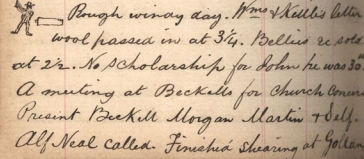 Rough windy day. Wms & Kellis letter
wool passed in at 3¼. Bellies &c sold
at 2½. No Scholarship for John he was 30th
A meeting at Becketts for Church Concert
Present Beckett Morgan Martin & Self.
Alf Neal called. Finished shearing at